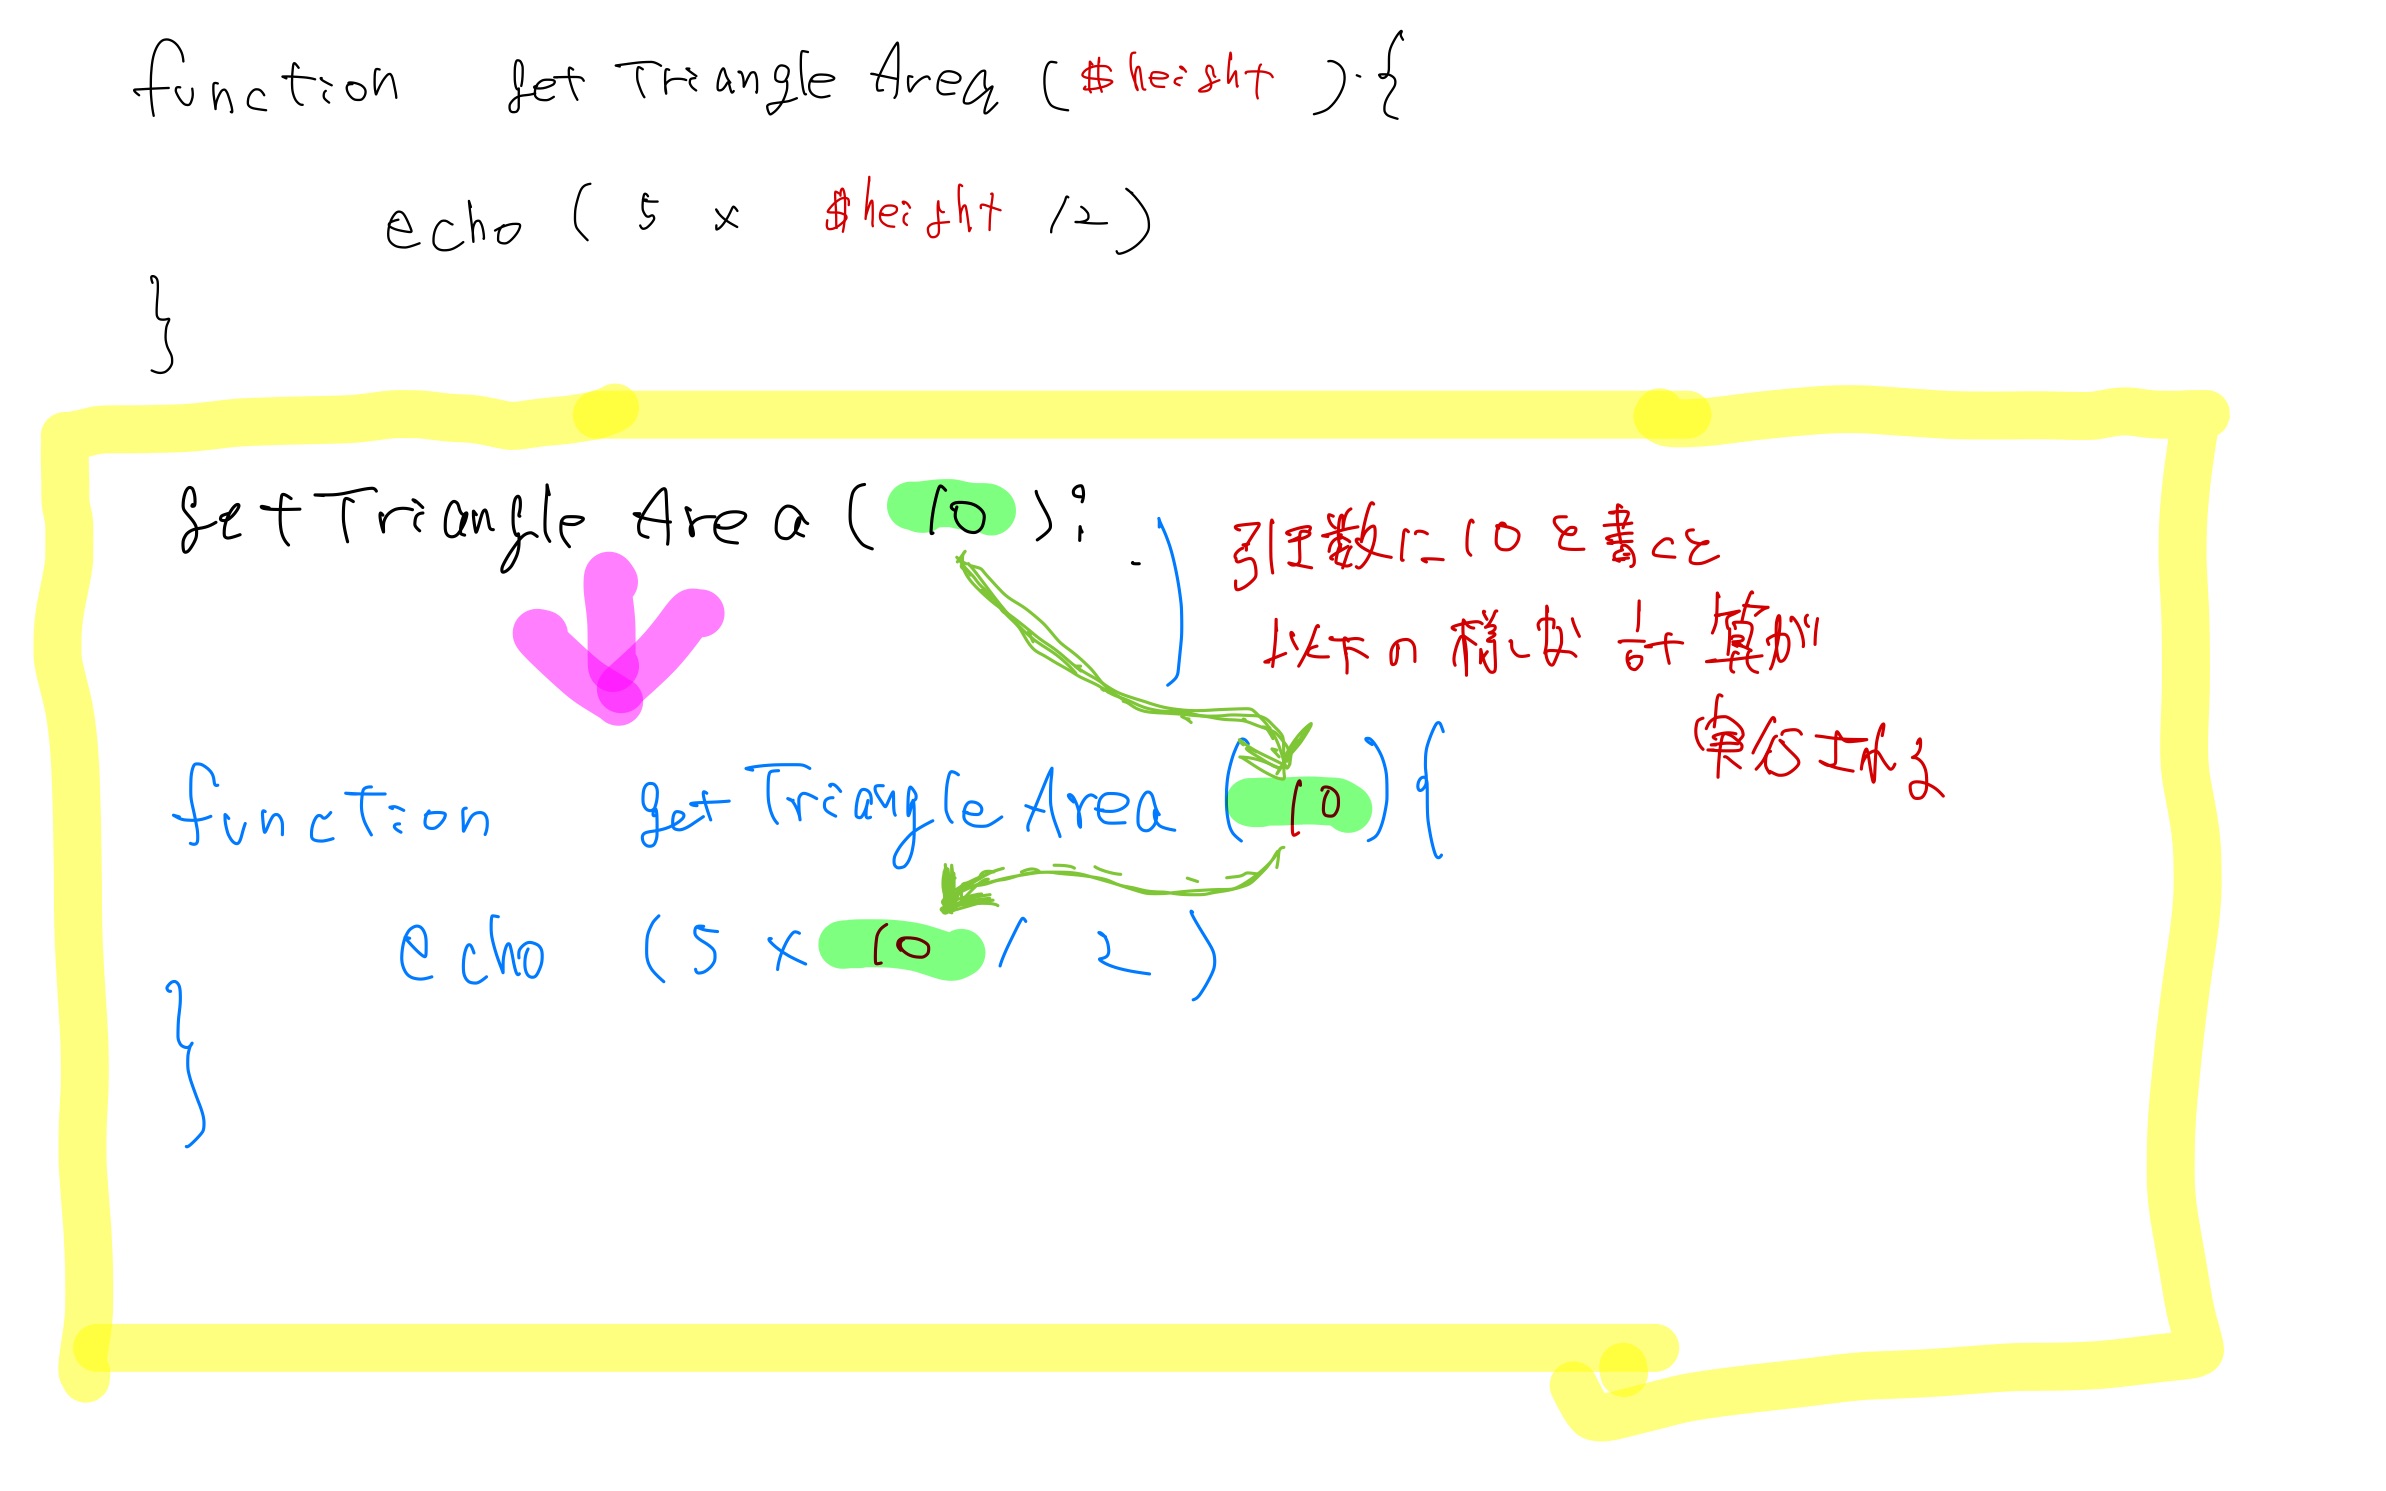 function getTriangleArea ($height) {
echo (5 × $height / 2)
}
getTriangleArea (10);
引数に10を書くと
以下の様な計算が
実行される
function getTriangleArea (10) {
echo (5 × 10 / 2)
}